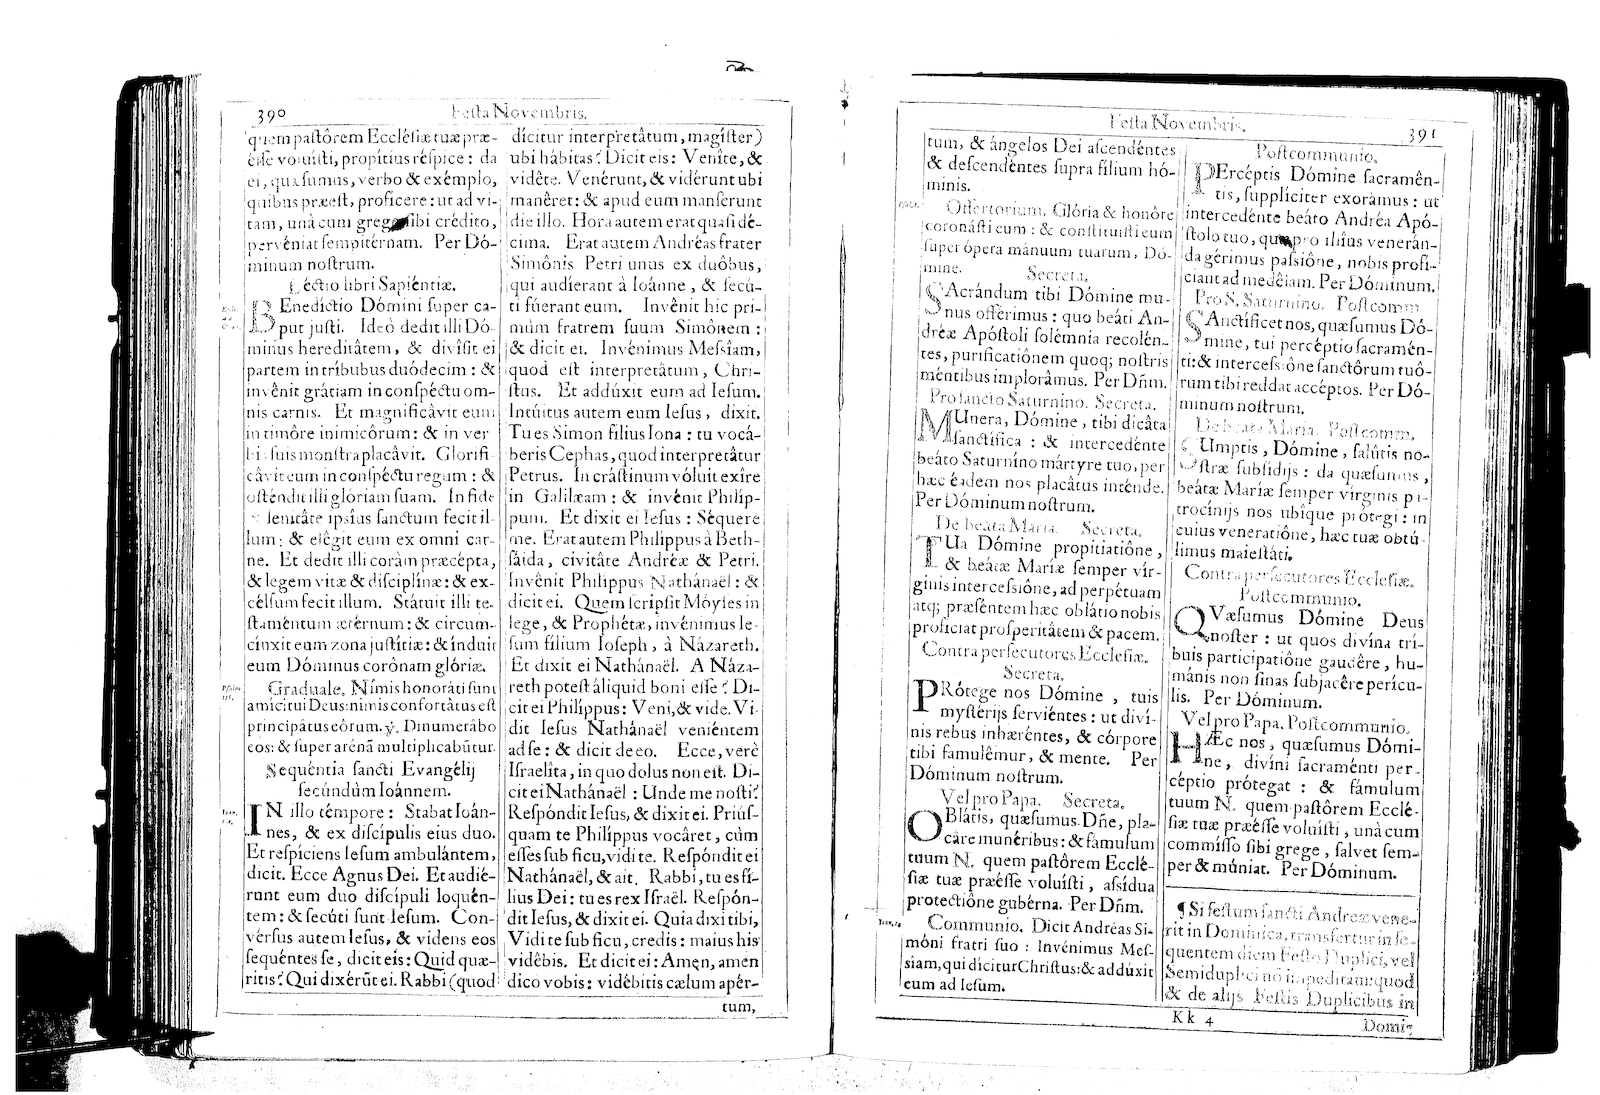 390
Festa Novembris.
quem pastôrem Ecclésiæ tuæ præ-
ésse voluísti, propítius réspice: da
ei, quæsumus, verbo & exémplo,
quibus præest, profícere: ut ad vi-
tam, unà cum grege sibi crédito,
pervéniat sempitérnam. Per Dó-
minum nostrum.
Léctio libri Sapiéntiæ.
BEnedíctio Dómini super ca-
put justi. Ideò dedit illi Dó-
minus hereditâtem, & divîsit ei
partem in tríbubus duódecim: &
invênit grátiam in conspéctu om-
nis carnis. Et magnificâvit eum
in timôre inimicôrum: & in ver
bis suis monstra placâvit. Glorifi-
câvit eum in conspéctu regum: &
osténdit illi glóriam suam. In fide
& lenitâte ipsíus sanctum fecit il-
lum: & elêgit eum ex omni car-
ne. Et dedit illi coràm præcépta,
& legem vitæ & disciplínæ: & ex-
célsum fecit illum. Státuit illi te-
staméntum ætérnum: & circum-
cínxit eum zona justítiæ: & índuit
eum Dóminus corônam glóriæ.
Graduale. Nimis honoráti sunt
amíci tui Deus: nimis confortâtus est
principâtus eórum. ℣. Dinumerábo
eos: & super arénã multiplicabũtur.
Sequéntia sancti Evangélij
secúndùm Ioánnem.
IN illo témpore: Stabat Ioán-
nes, & ex discípulis eius duo.
Et respíciens Iesum ambulántem,
dicit. Ecce Agnus Dei. Et audié-
runt eum duo discípuli loquén-
tem: & secúti sunt Iesum. Con-
vérsus autem Iesus, & videns eos
sequéntes se, dicit eis: Quid quæ-
ritis? Qui dixérũt ei. Rabbi (quod
dícitur interpretâtum, magíster)
ubi hábitas? Dicit eis: Venîte, &
vidête. Venérunt, & vidérunt ubi
manêret: & apud eum mansérunt
die illo. Hora autem erat quasi dé-
cima. Erat autem Andréas frater
Simônis Petri unus ex duôbus,
qui audíerant à Ioánne, & secú-
ti fúerant eum. Invênit hic pri-
mùm fratrem suum Simônem:
& dicit ei. Invénimus Messîam,
quod est interpretâtum, Chri-
stus. Et addúxit eum ad Iesum.
Intúitus autem eum Iesus, dixit.
Tu es Simon filius Iona: tu vocá-
beris Cephas, quod interpretâtur
Petrus. In crástinum vóluit exîre
in Galilæam: & invénit Philíp-
pum. Et dixit ei Iesus: Séquere
me. Erat autem Philíppus à Beth-
sáida, civitâte Andréæ & Petri.
Invénit Philíppus Nathánaël: &
dicit ei. Quem scripsit Móyses in
lege, & Prophétæ, invénimus Ie-
sum fílium Ioseph, à Názareth.
Et dixit ei Nathánaël. A Náza-
reth potest áliquid boni esse? Di-
cit ei Philíppus: Veni, & vide. Vi-
dit Iesus Nathánaël veniéntem
ad se: & dicit de eo. Ecce, verè
Israelíta, in quo dolus non est. Di-
cit ei Nathánaël: Unde me nosti?
Respóndit Iesus, & dixit ei. Priús-
quam te Philíppus vocâret, cùm
esses sub ficu, vidi te. Respóndit ei
Nathánaël, & ait. Rabbi, tu es fí-
lius Dei: tu es rex Israël. Respón-
dit Iesus, & dixit ei. Quia dixi tibi,
Vidi te sub ficu, credis: maius his
vidébis. Et dicit ei: Amen, amen
dico vobis: vidébitis cælum apér-
tum,
Festa Novembris.
391
tum, & ángelos Dei ascendéntes
& descendéntes supra fílium hó-
minis.
Offertorium. Glória & honôre
coronásti eum: & constituísti eum
super ópera mánuum tuarum, Dó-
mine.
Secreta.
SAcrándum tibi Dómine mu-
nus offérimus: quo beáti An-
dréæ Apóstoli solémnia recolén-
tes, purificatiónem quoq; nostris
méntibus implorâmus. Per Dñm.
Pro sancto Saturnino. Secreta.
MUnera, Dómine, tibi dicâta
sanctífica: & intercedénte
beáto Saturníno mártyre tuo, per
hæc éadem nos placâtus inténde.
Per Dóminum nostrum.
De beata Maria. Secreta.
TUa Dómine propitiatiône,
& beátæ Maríæ semper vír-
ginis intercessióne, ad perpétuam
atq; præséntem hæc oblátio nobis
profíciat prosperitâtem & pacem.
Contra persecutores Ecclesiæ.
Secreta.
PRótege nos Dómine, tuis
mystérijs serviéntes: ut diví-
nis rebus inhæréntes, & córpore
tibi famulêmur, & mente. Per
Dóminum nostrum.
Vel pro Papa. Secreta.
OBlátis, quæsumus Dñe, pla-
câre munéribus: & fámulum
tuum N. quem pastôrem Ecclé-
siæ tuæ præésse voluísti, assídua
protectiône gubérna. Per Dñm.
Communio. Dicit Andréas Si-
móni fratri suo: Invénimus Mes-
siam, qui dícitur Christus: & addúxit
eum ad Iesum.
Postcommunio.
PErcéptis Dómine sacramén-
tis, súppliciter exorâmus: ut
intercedénte beáto Andréa Apó-
stolo tuo, quæ pro illíus venerán-
da gérimus passiône, nobis profi-
ciant ad medêlam. Per Dóminum.
Pro S. Saturnino. Postcomm
SAnctíficet nos, quæsumus Dó-
mine, tui percéptio sacramén-
ti: & intercessióne sanctôrum tuô-
rum tibi reddat accéptos. Per Dó-
minum nostrum.
De beata Maria. Postcomm.
SUmptis, Dómine, salûtis no-
stræ subsídijs: da quæsumus,
beátæ Maríæ semper vírginis pa-
trocínijs nos ubîque prótegi: in
cuius veneratióne, hæc tuæ obtú-
limus maiestáti.
Contra persecutores Ecclesiæ.
Postcommunio.
QVæsumus Dómine Deus
noster: ut quos divína trí-
buis participatiône gaudêre, hu-
mánis non sinas subjacêre perícu-
lis. Per Dóminum.
Vel pro Papa. Postcommunio.
HÆc nos, quæsumus Dómi-
ne, divíni sacraménti per-
céptio prótegat: & fámulum
tuum N. quem pastórem Ecclé-
siæ tuæ præésse voluísti, unà cum
commísso sibi grege, salvet sem-
per & múniat. Per Dóminum.
¶ Si festum sancti Andreæ vene-
rit in Dominica, transfertur in se-
quentem diem Festo Duplici, vel
Semiduplici nõ impeditam: quod
& de alijs Festis Duplicibus in
Kk 4
Domi-